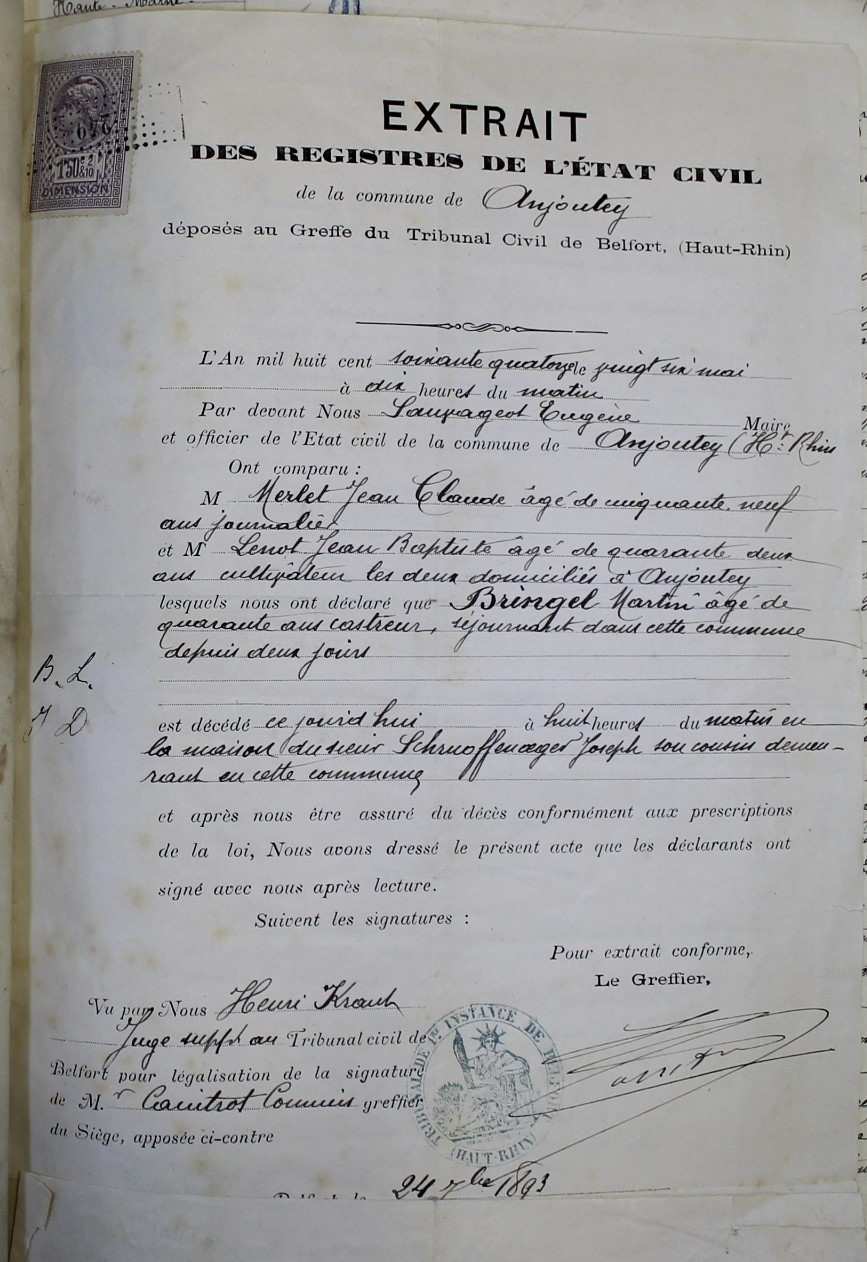 Haute-Marne
1F50 2/10
DIMENSION
EXTRAIT
DES REGISTRES DE L'ÉTAT CIVIL
de la commune de Anjoutey
déposés au Greffe du Tribunal Civil de Belfort, (Haut-Rhin)
L'An mil huit cent soixante quatorze le vingt six mai
à dix heures du matin
Par devant Nous Sauvageot Eugène Maire
et officier de l'Etat civil de la commune de Anjoutey (Ht Rhin
Ont comparu :
M Merlet Jean Claude âgé de cinquante neuf
ans journalier
et Mr Lenot Jean Baptiste âgé de quarante deux
ans cultivateur les deux domiciliés à Anjoutey
lesquels nous ont déclaré que Bringel Martin âgé de
quarante ans castreur, séjournant dans cette commune
depuis deux jours
B. L.
J D
est décédé ce jourd'hui à huit heures du matin en
la maison du sieur Schruoffeneger Joseph son cousin demeu-
rant en cette commune
et après nous être assuré du décès conformément aux prescriptions
de la loi, Nous avons dressé le présent acte que les déclarants ont
signé avec nous après lecture.
Suivent les signatures :
Pour extrait conforme,
Le Greffier,
Vu par Nous Henri Krant
Juge suppt au Tribunal civil de
Belfort pour légalisation de la signature
de M.r Canitrot Commis greffier
du Siège, apposée ci-contre
TRIBUNAL DE 1re INSTANCE DE BELFORT
(HAUT-RHIN)
Belfort le 24 7bre 1893